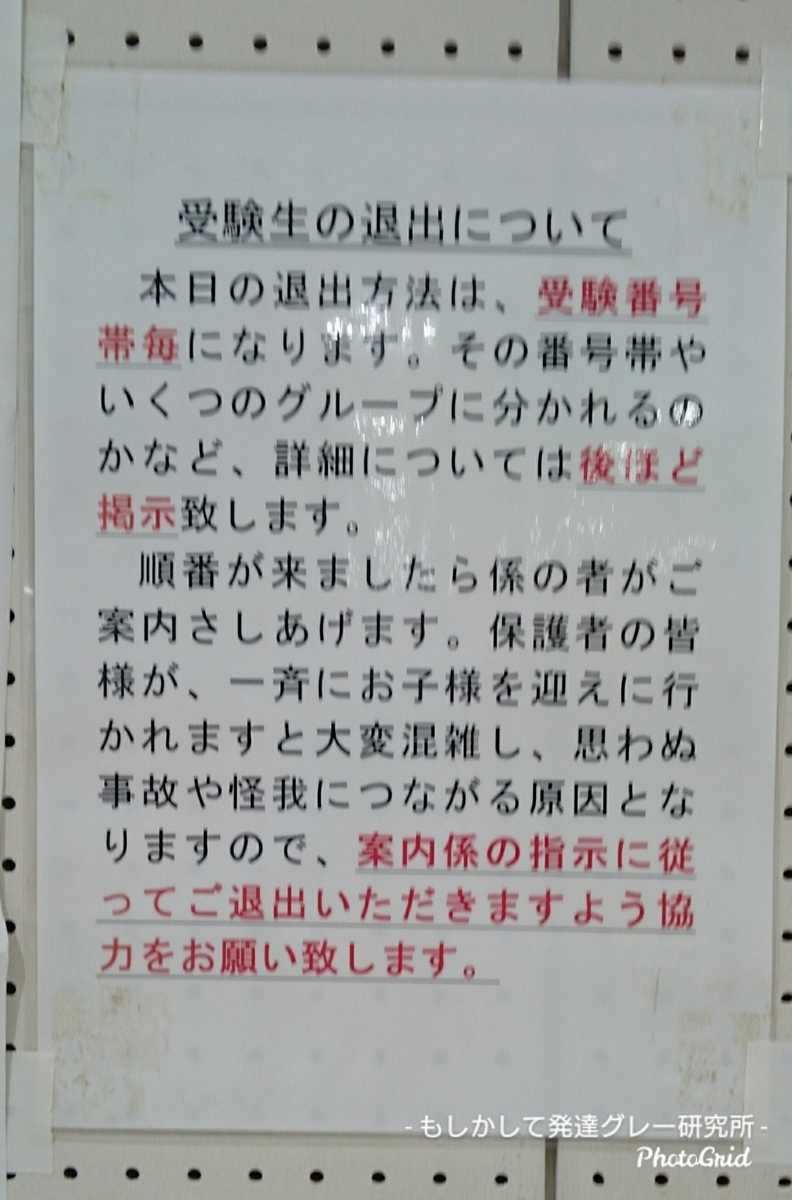 受験生の退出について
本日の退出方法は、受験番号
帯毎になります。その番号帯や
いくつのグループに分かれるの
かなど、詳細については後ほど
掲示致します。
順番が来ましたら係の者がご
案内さしあげます。保護者の皆
様が、一斉にお子様を迎えに行
かれますと大変混雑し、思わぬ
事故や怪我につながる原因とな
りますので、案内係の指示に従
ってご退出いただきますよう協
力をお願い致します。
- もしかして発達グレー研究所 -
PhotoGrid